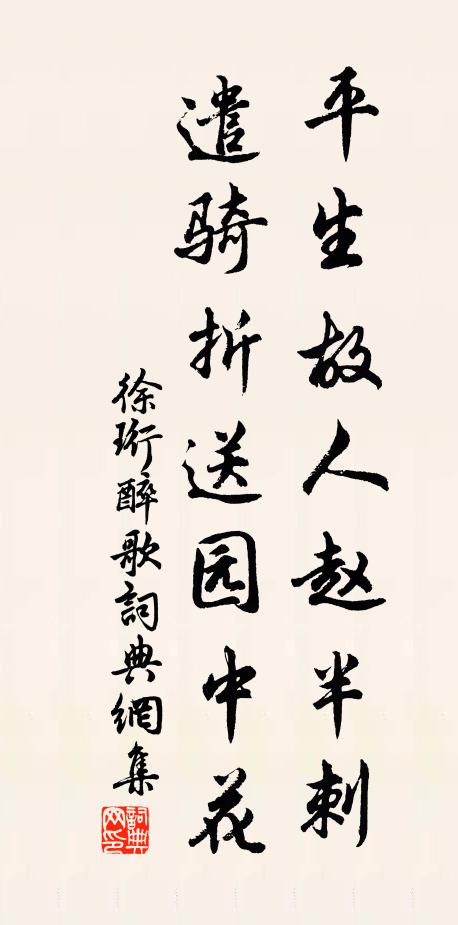 平生故人赵半刺
遣骑折送园中花
徐珩醉歌詞典網集
詞典網印